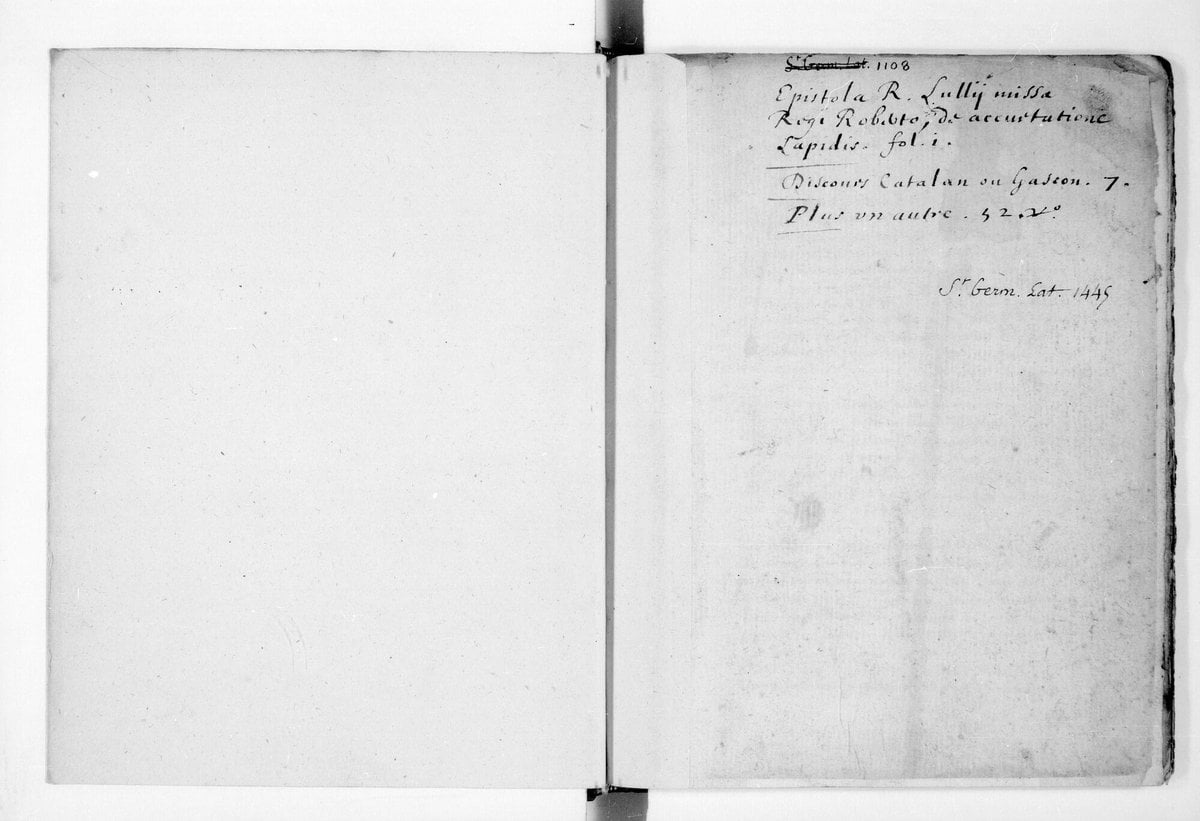 St Germ. Lat. 1108
Epistola R. Lullij missa
Regi Roberto, de accurtatione
Lapidis. fol. i.
Discours Catalan ou Gascon. 7.
Plus vn autre. 52. vº.
St Germ. Lat. 1445